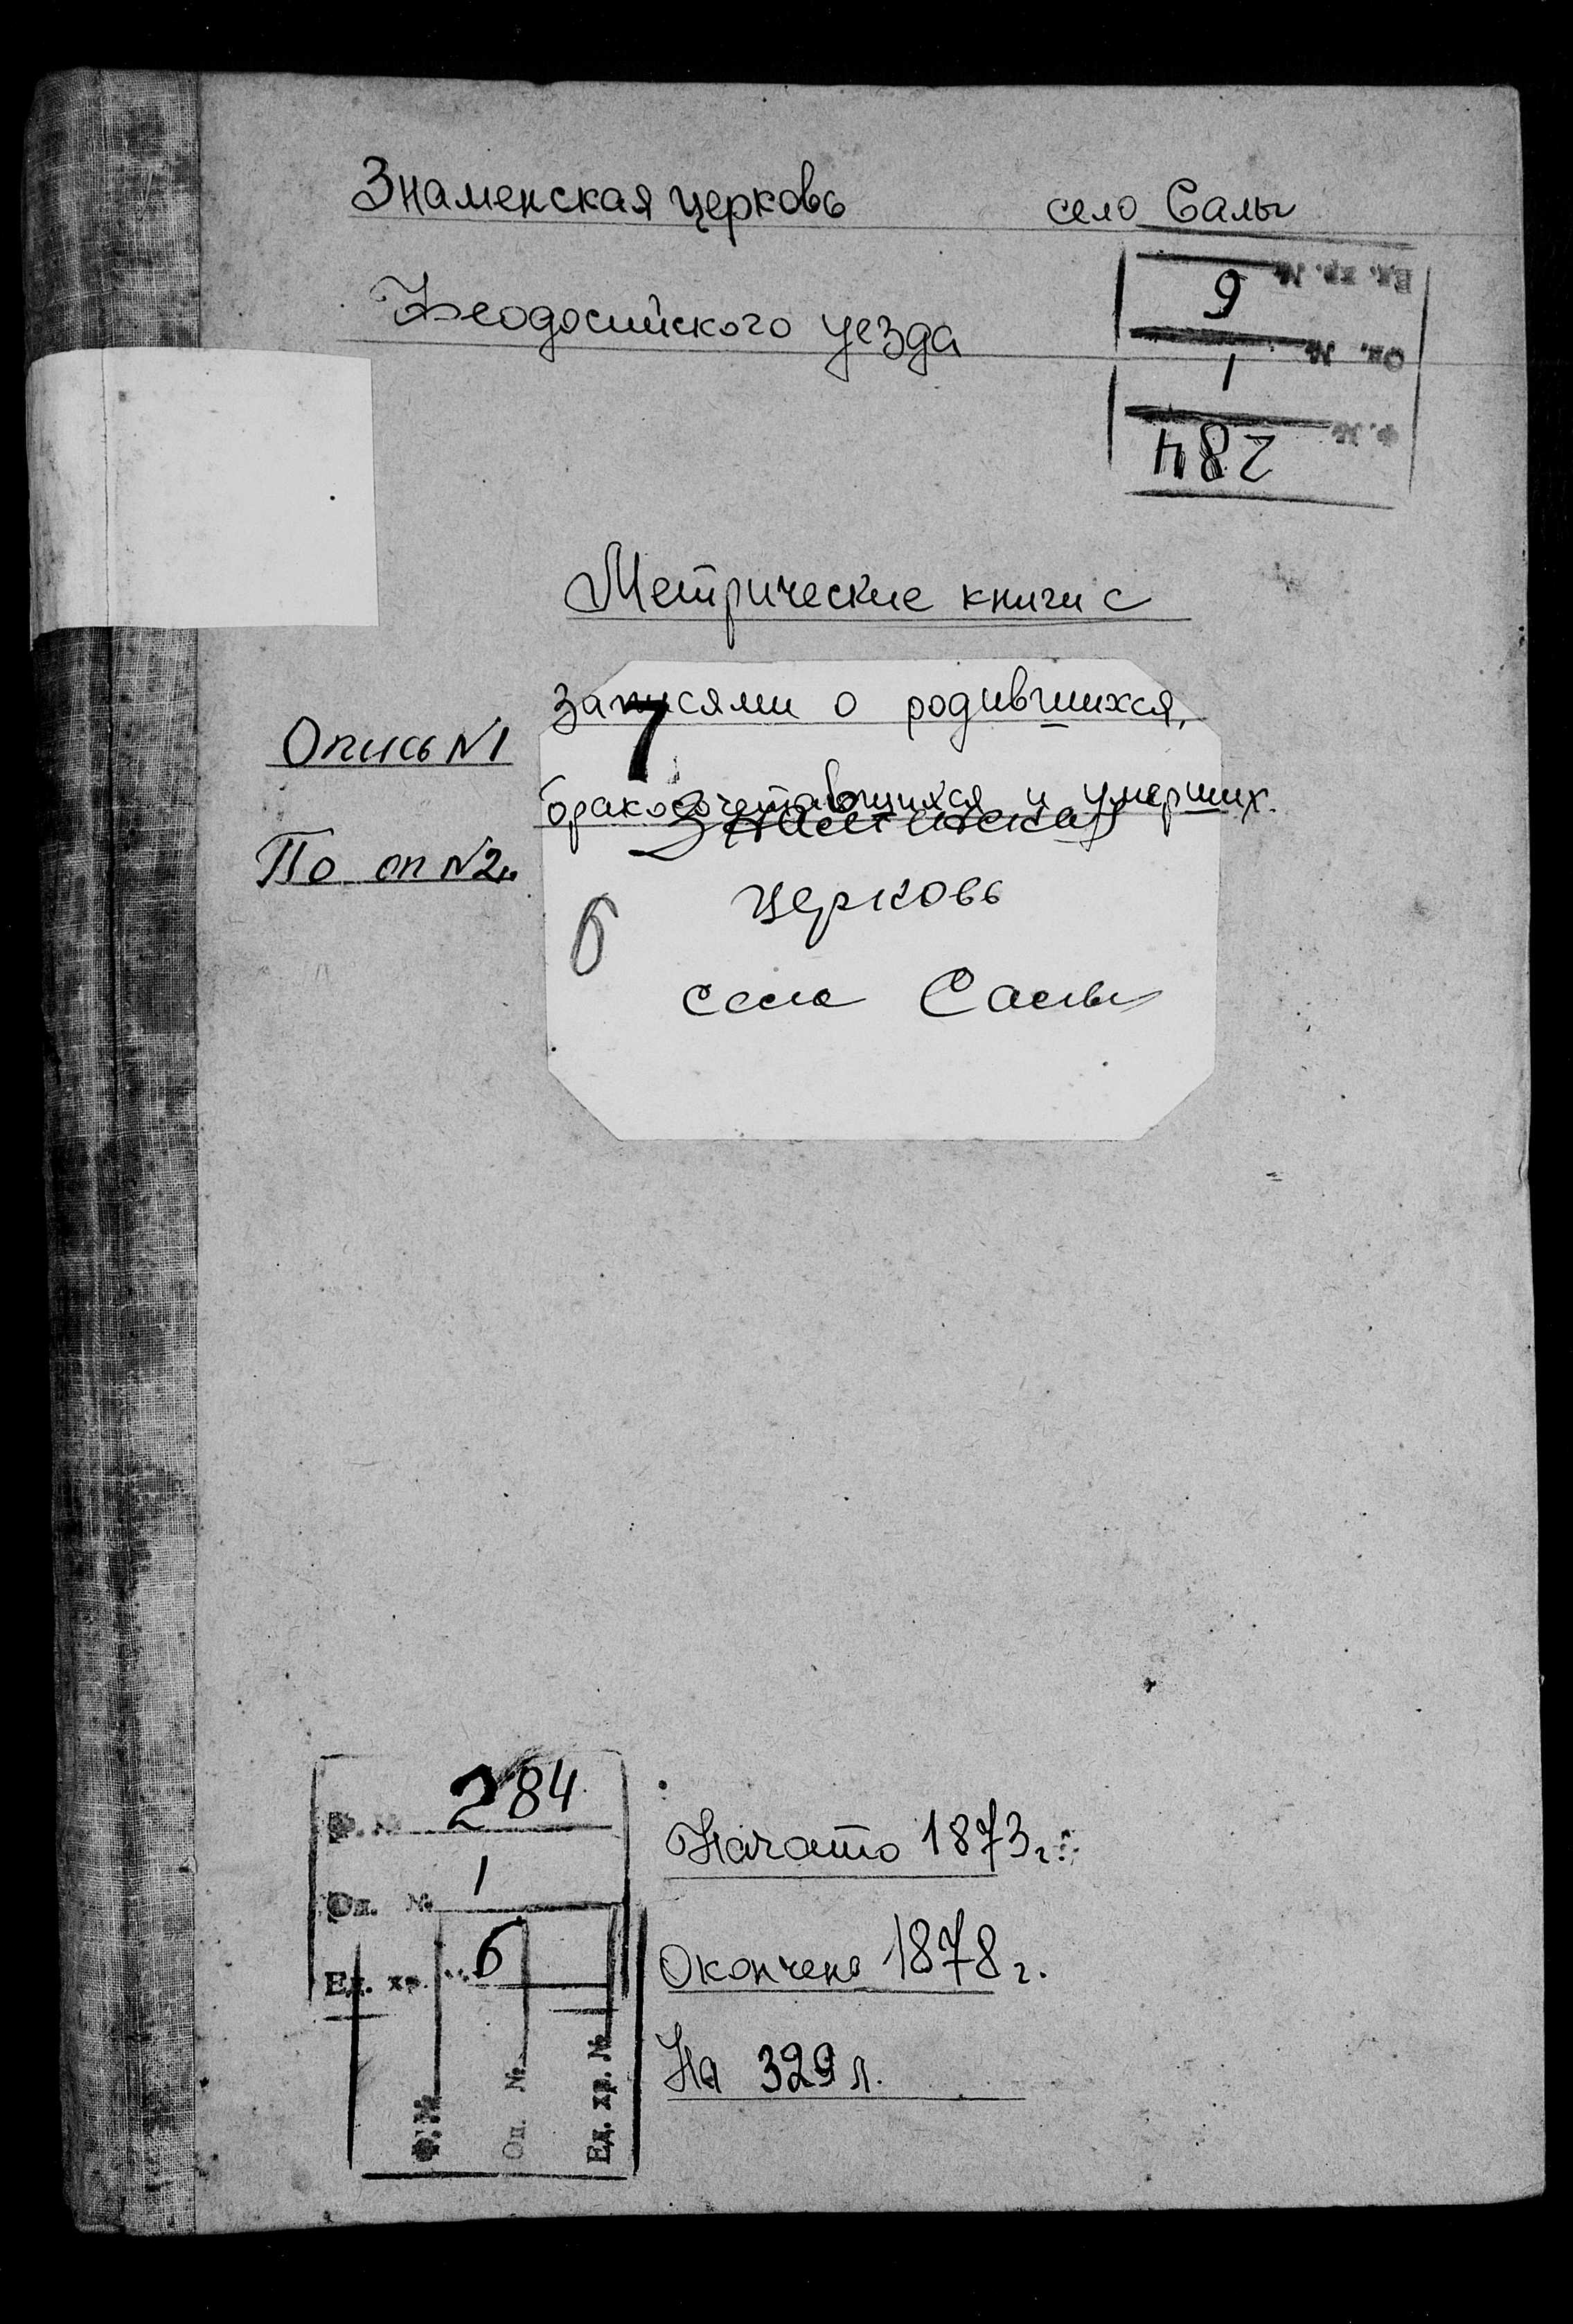 Знаменская церковь село Салы
Феодосийского уезда
Ед. хр. № 6
Оп. № 1
Ф. № 284
Метрические книги с
записями о родившихся,
7
Опись №1
бракосочетавшихся и умерших.
Знаменская
По оп №2
церковь
6
села Салы
Ф. № 284
Оп. № 1
Ед. хр. 6
Начато 1873 г.
Окончено 1878 г.
На 329 л.
Ф. №
Оп. №
Ед. хр. №